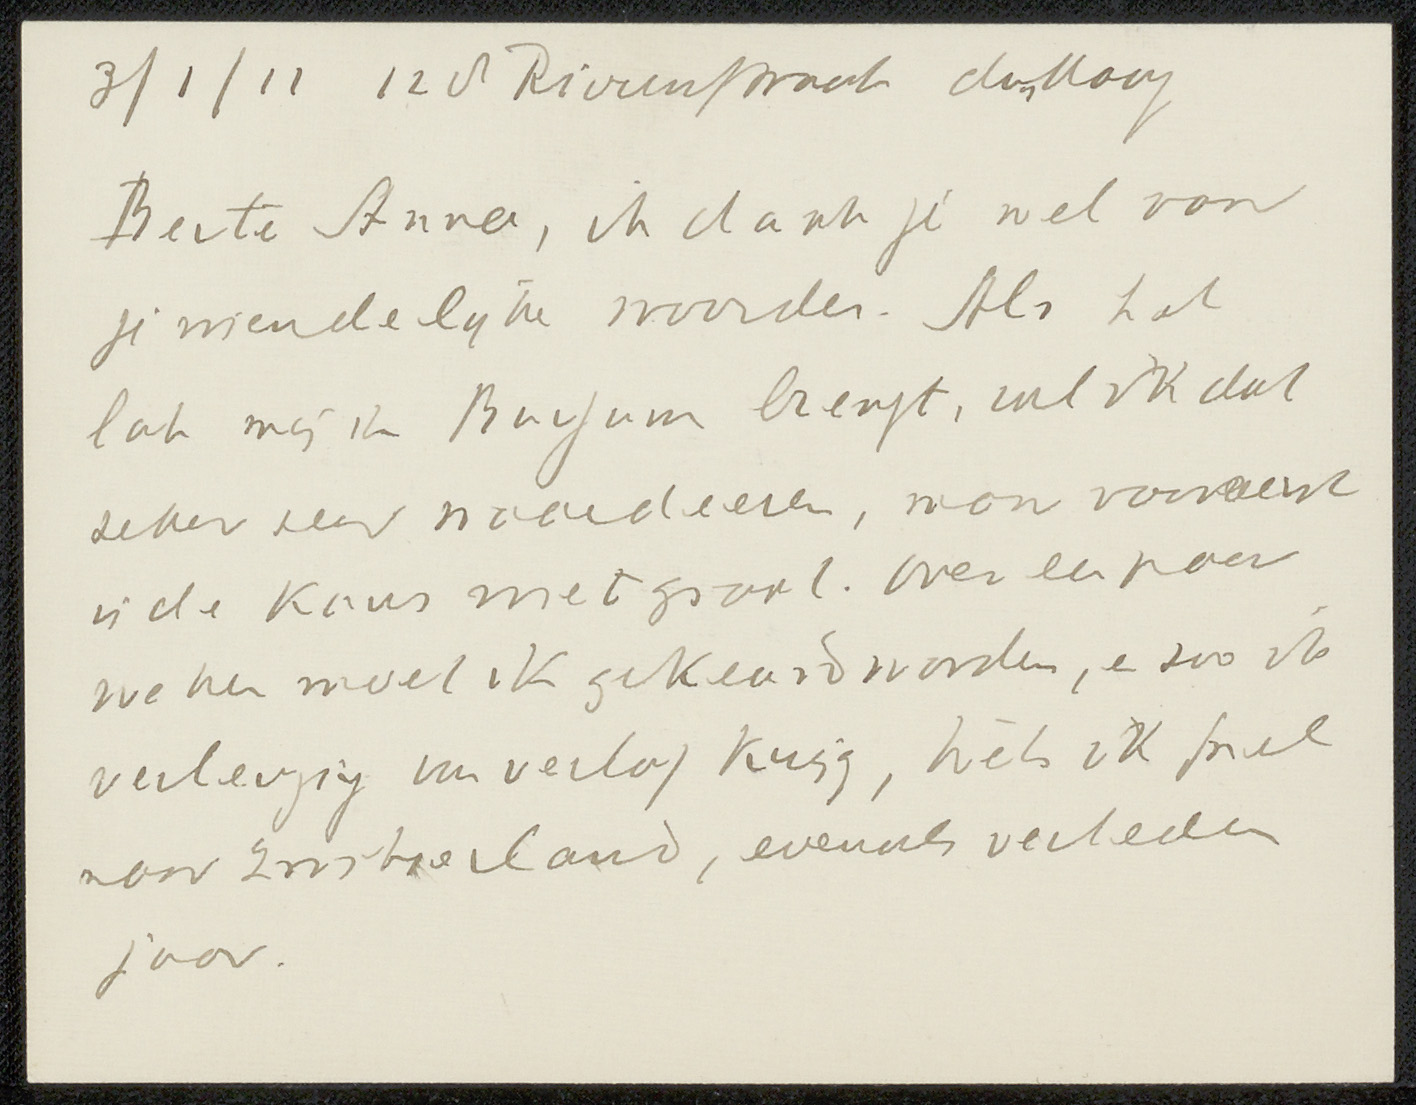 3/1/11 128 Riouwstraat den Haag
Beste Anna, ik dank je wel voor
je vriendelijke woorden. Als het
lot mij in Bussum brengt, zal ik dat
zeker zeer waardeeren, maar vooreerst
is de kans niet groot. Over een paar
weken moet ik gekeurd worden, en zoo ik
verlenging van verlof krijg, trek ik snel
naar Zwitserland, evenals verleden
jaar.